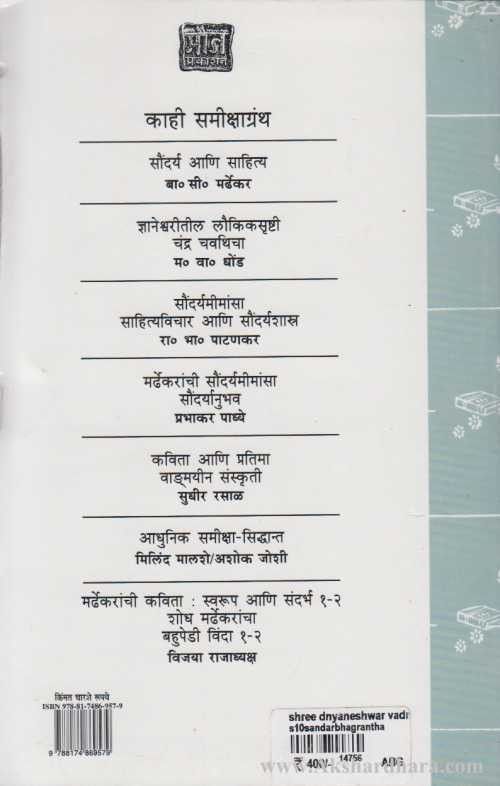 मौज
प्रकाशन
काही समीक्षाग्रंथ
सौंदर्य आणि साहित्य
बा० सी० मर्ढेकर
ज्ञानेश्वरीतील लौकिकसृष्टी
चंद्र चवथिचा
म० वा० धोंड
सौंदर्यमीमांसा
साहित्यविचार आणि सौंदर्यशास्त्र
रा० भा० पाटणकर
मर्ढेकरांची सौंदर्यमीमांसा
सौंदर्यानुभव
प्रभाकर पाध्ये
कविता आणि प्रतिमा
वाङ्मयीन संस्कृती
सुधीर रसाळ
आधुनिक समीक्षा-सिद्धान्त
मिलिंद मालशे/अशोक जोशी
मर्ढेकरांची कविता : स्वरूप आणि संदर्भ १-२
शोध मर्ढेकरांचा
बहुपेडी विंदा १-२
विजया राजाध्यक्ष
किंमत चारशे रूपये
ISBN 978-81-7486-957-9
9 788174 869579
shree dnyaneshwar vadn
s10sandarbhagrantha
14756
₹ 400/- ABG
www.Akshardhara.com